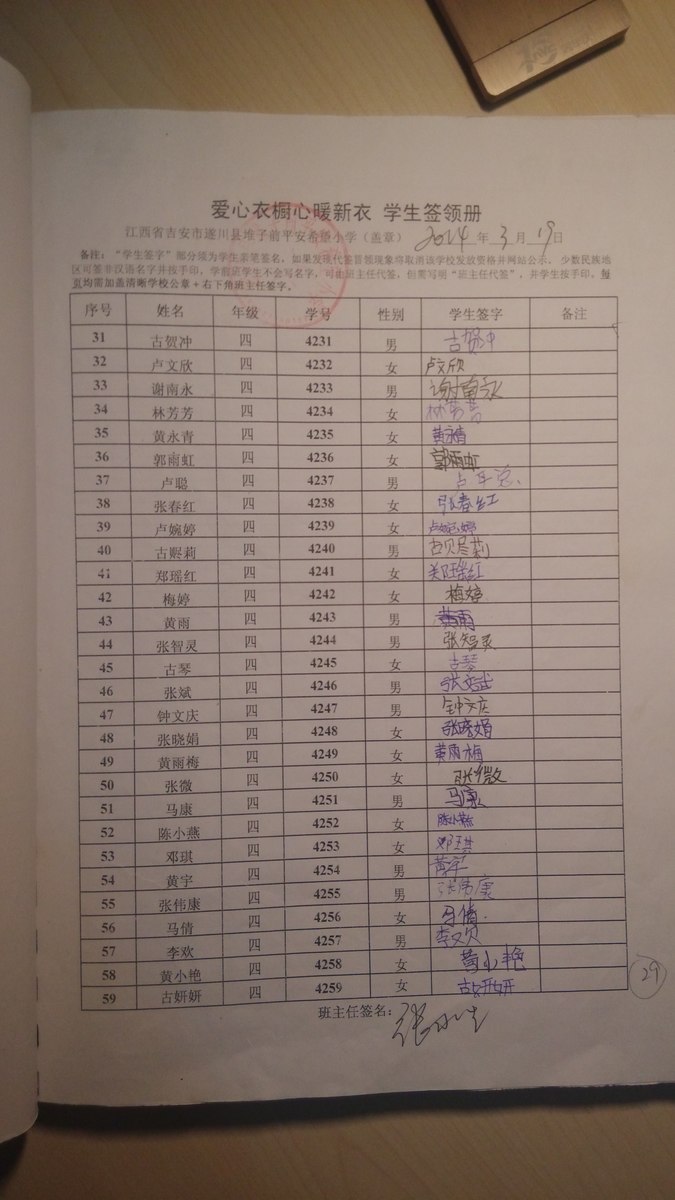 爱心衣橱心暖新衣 学生签领册
江西省吉安市遂川县堆子前平安希望小学（盖章） 2014 年 3 月 19 日
备注：“学生签字”部分须为学生亲笔签名，如果发现代签冒领现象将取消该学校发放资格并网站公示。少数民族地
区可签非汉语名字并按手印，学前班学生不会写名字，可由班主任代签，但需写明“班主任代签”，并学生按手印。每
页均需加盖清晰学校公章+右下角班主任签字。
序号 姓名 年级 学号 性别 学生签字 备注
31 古贺冲 四 4231 男 古贺冲
32 卢文欣 四 4232 女 卢文欣
33 谢南永 四 4233 男 谢南永
34 林芳芳 四 4234 女 林芳芳
35 黄永青 四 4235 女 黄永青
36 郭雨虹 四 4236 女 郭雨虹
37 卢聪 四 4237 男
38 张春红 四 4238 女 张春红
39 卢婉婷 四 4239 女 卢婉婷
40 古赆莉 四 4240 男 古赆莉
41 郑瑶红 四 4241 女 郑瑶红
42 梅婷 四 4242 女 梅婷
43 黄雨 四 4243 男 黄雨
44 张智灵 四 4244 男 张智灵
45 古琴 四 4245 女 古琴
46 张斌 四 4246 男 张斌
47 钟文庆 四 4247 男 钟文庆
48 张晓娟 四 4248 女 张晓娟
49 黄雨梅 四 4249 女 黄雨梅
50 张微 四 4250 女 张微
51 马康 四 4251 男 马康
52 陈小燕 四 4252 女 陈小燕
53 邓琪 四 4253 女 邓琪
54 黄宇 四 4254 男 黄宇
55 张伟康 四 4255 男 张伟康
56 马倩 四 4256 女 马倩.
57 李欢 四 4257 男 李欢
58 黄小艳 四 4258 女 黄小艳
59 古妍妍 四 4259 女 古妍妍
29
班主任签名：